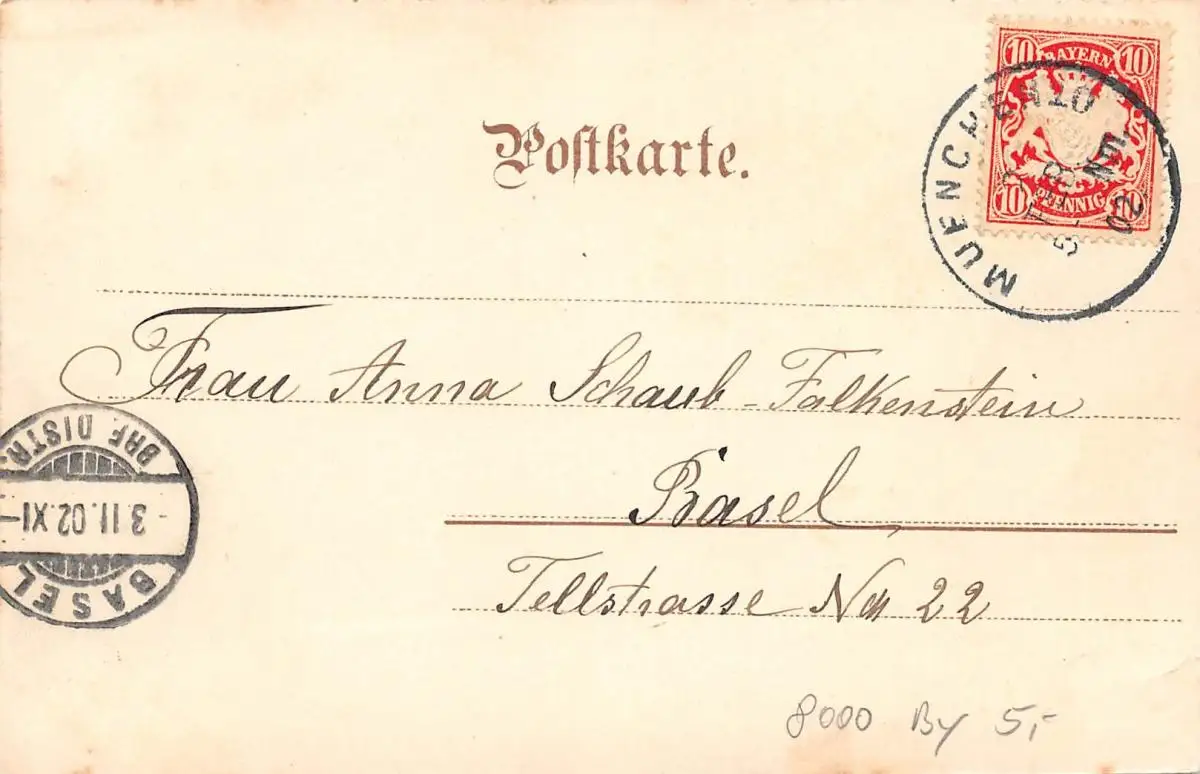 10 BAYERN 10
10 PFENNIG 10
MUENCHEN 10
02
Postkarte.
Frau Anna Schaub-Falkenstein
Basel
Tellstrasse No 22
BRF. DISTR.
3 II. 02.XI-
BASEL
8000 By 5,-